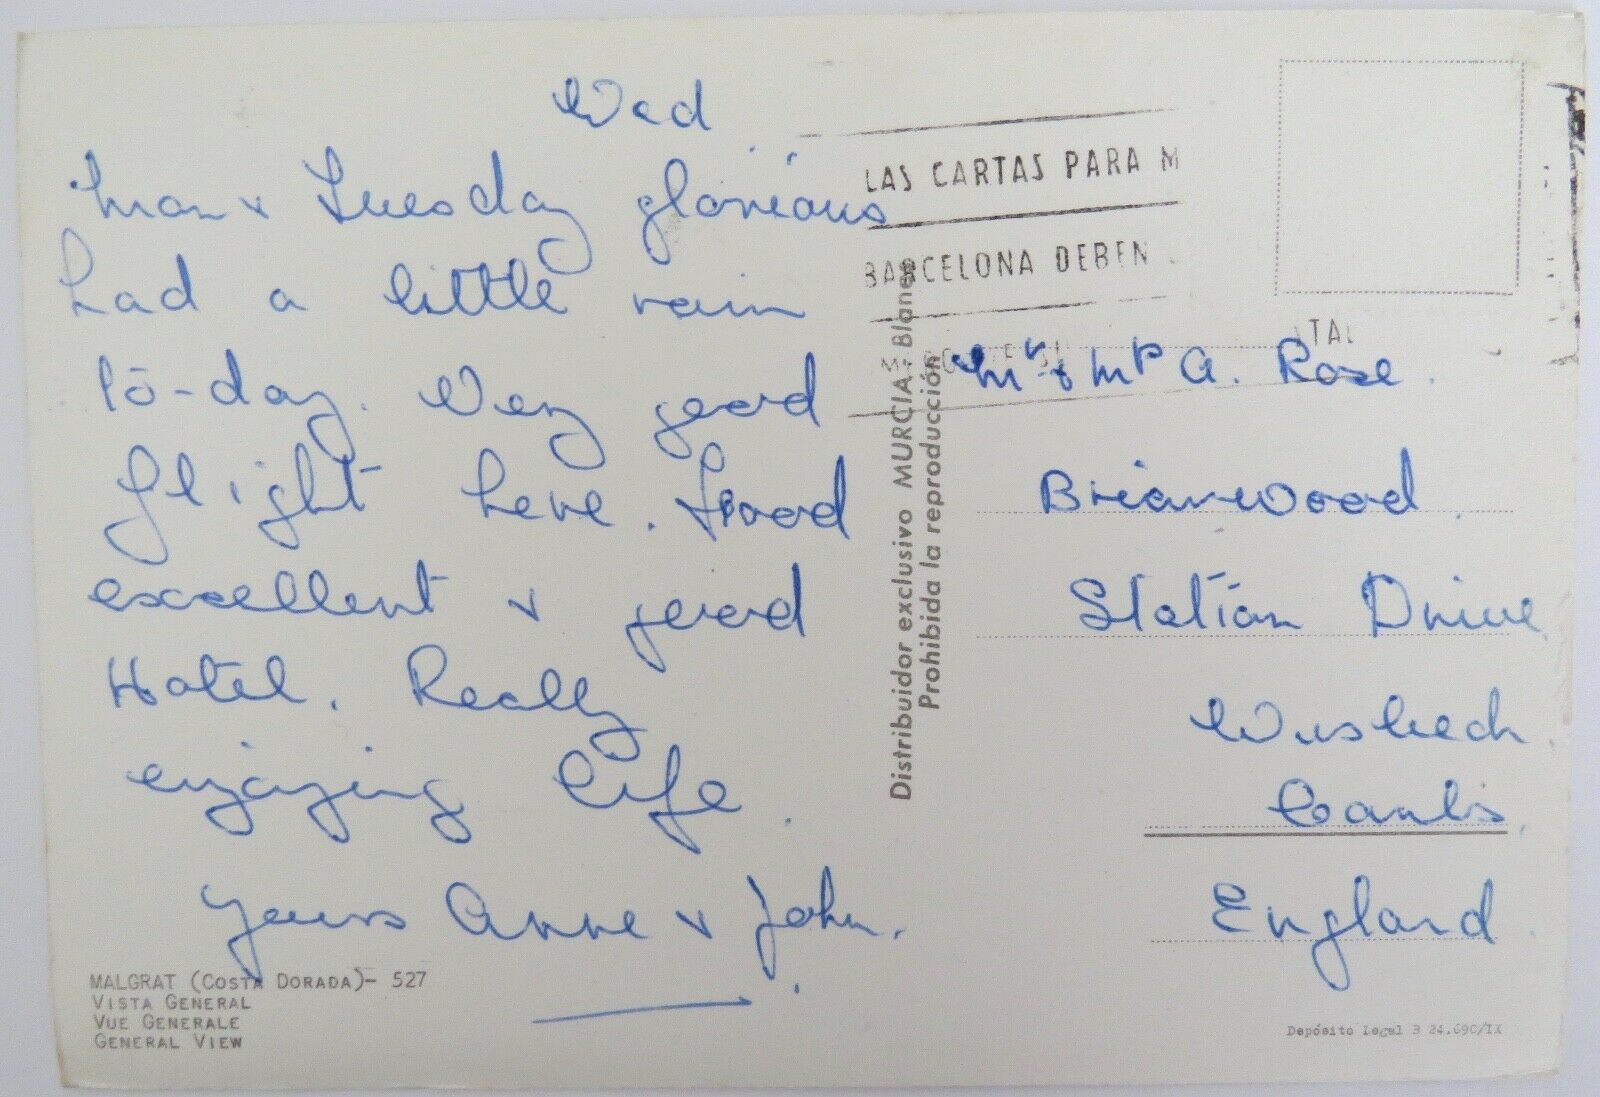 Wed
Mon & Tuesday glorious
had a little rain
to-day. Very good
flight here. Food
excellent & good
Hotel. Really
enjoying life.
Yours Anne & John.
MALGRAT (COSTA DORADA)- 527
VISTA GENERAL
VUE GENERALE
GENERAL VIEW
Distribuidor exclusivo MURCIA. Blanes
Prohibida la reproducción
LAS CARTAS PARA M
BARCELONA DEBEN
ITAL
Mr & Mrs A. Rose.
Briarwood.
Station Drive
Wisbech.
Cambs.
England.
Depósito legal B 24.690/IX